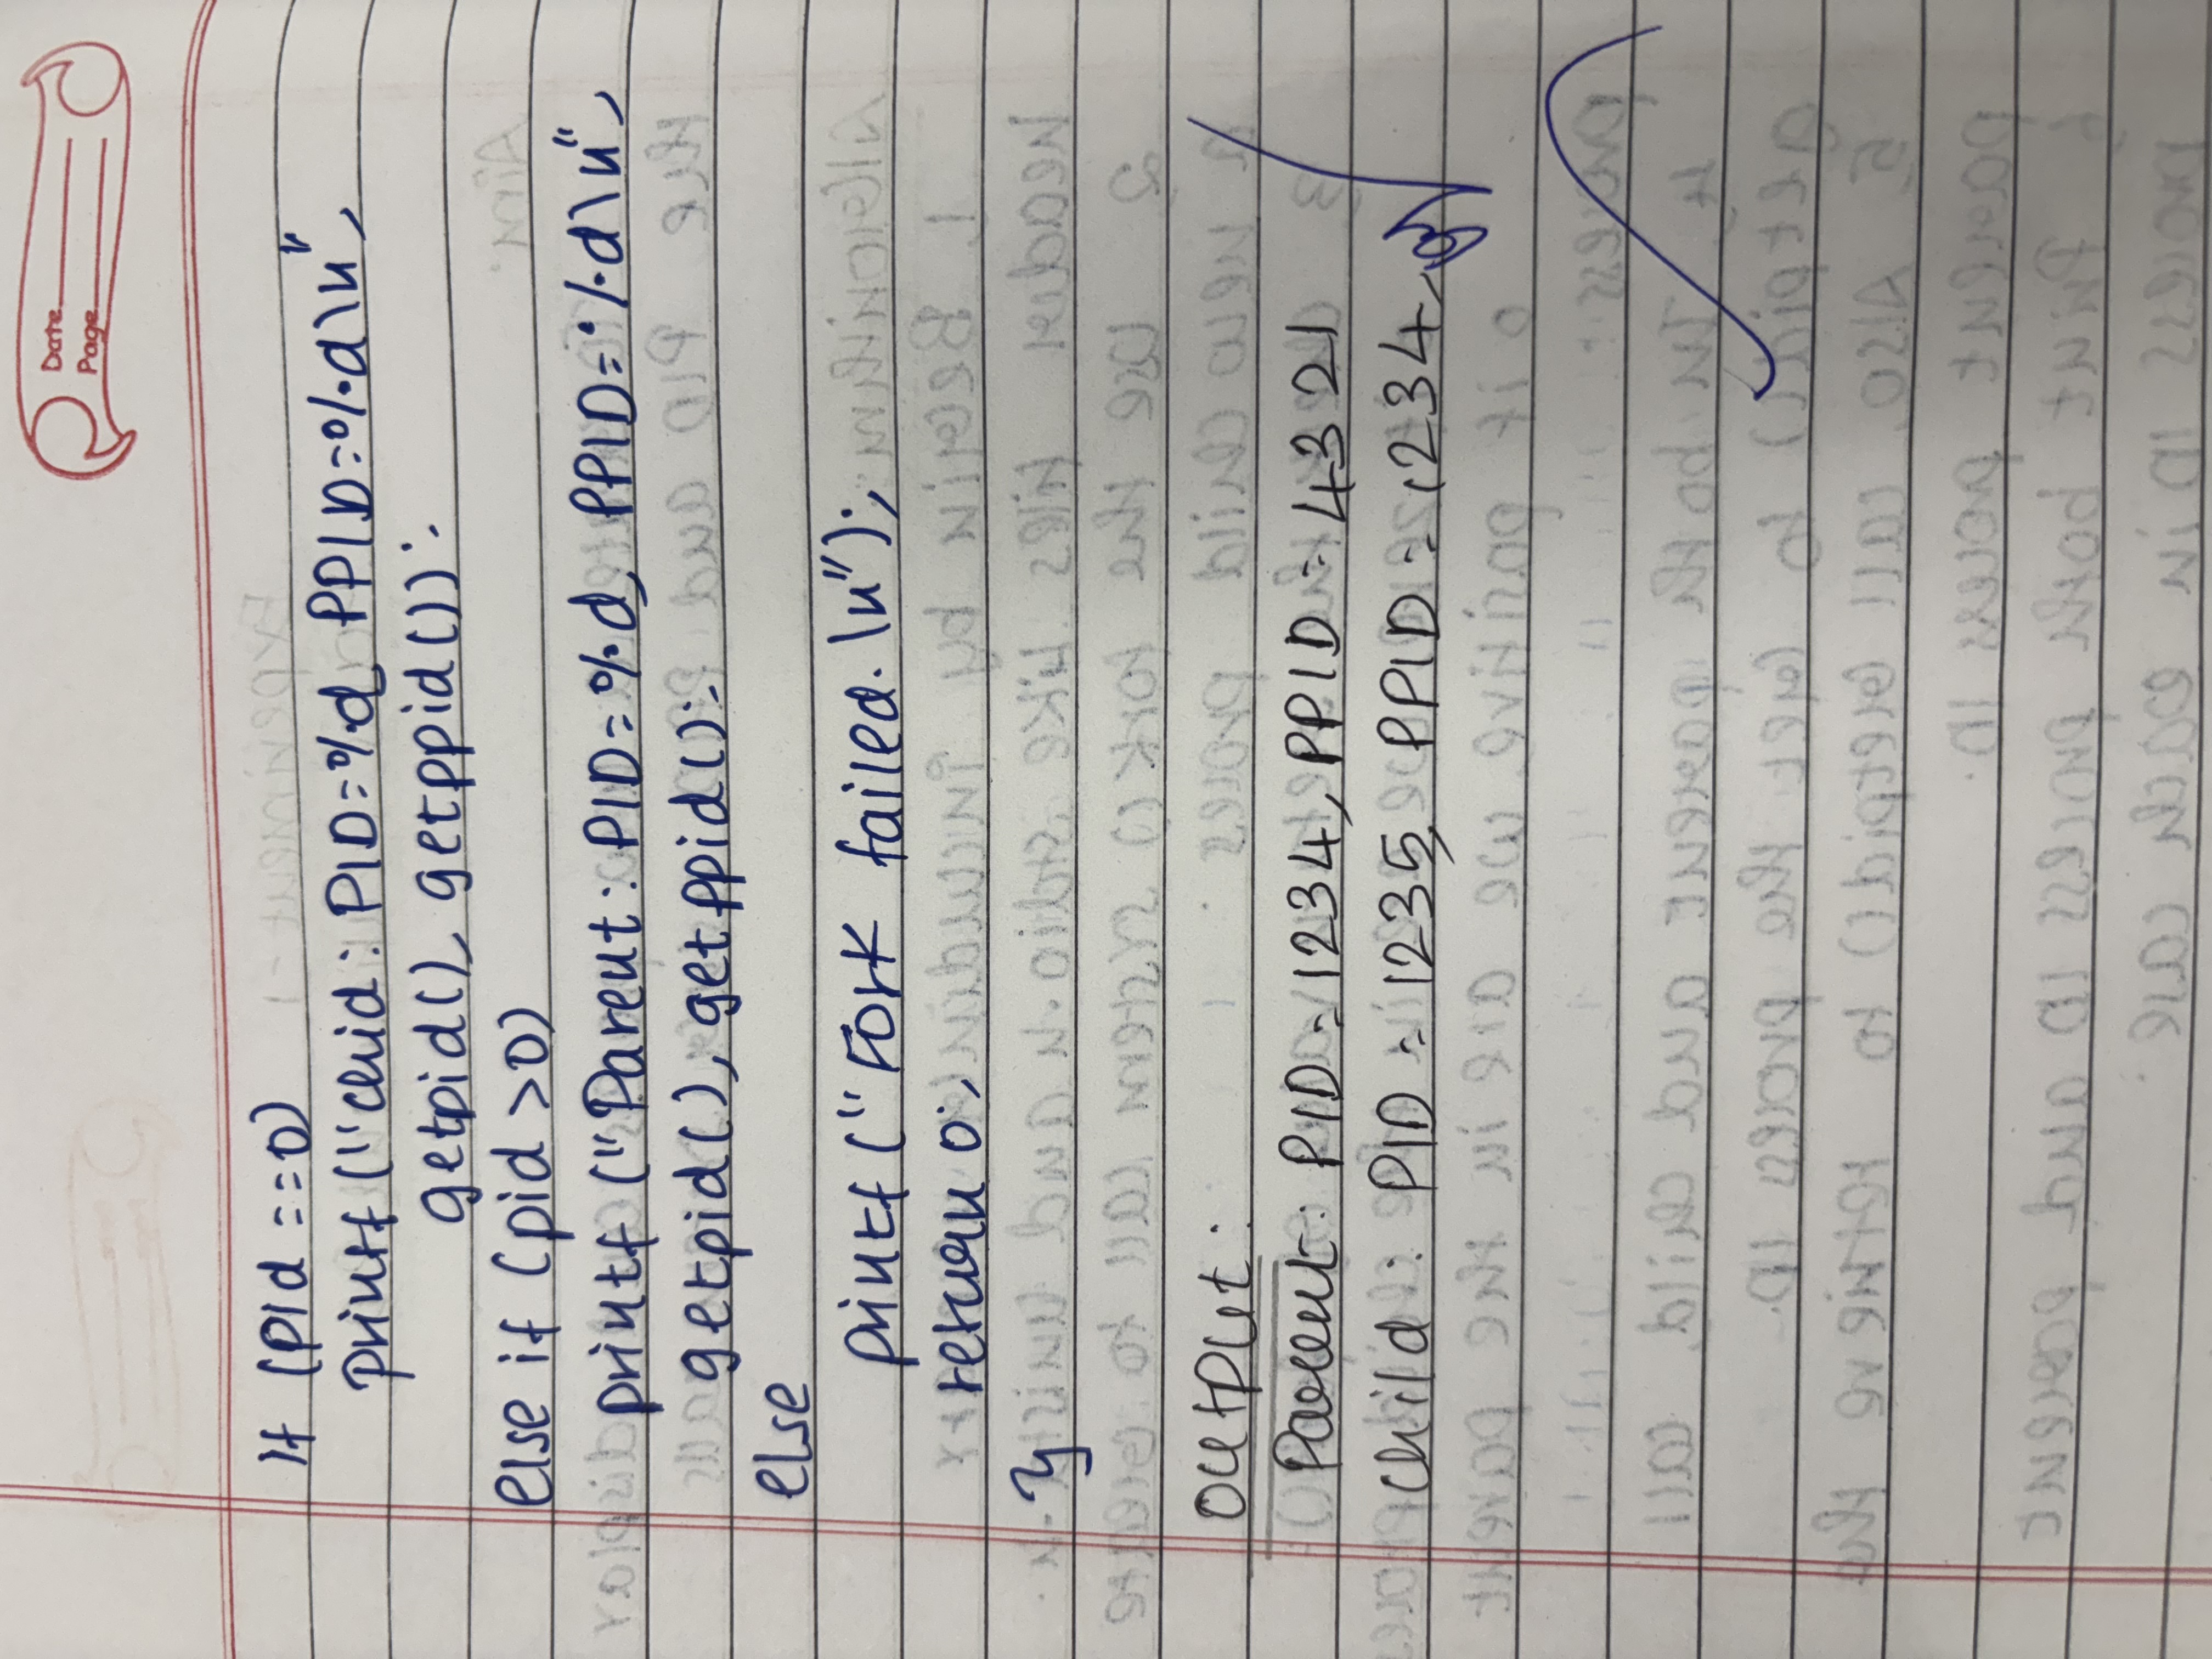 Date
Page
if (pid ==0)
printf ("Chid: PID=%d, PPID=%d\n",
getpid(), getppid());
else if (pid >0)
printf ("Parent: PID=%d, PPID=%d\n",
getpid(), getppid();
else
printf ("Fork failed.\n");
return 0;
}
Output:
Parent: PID = 1234, PPID = 4321
Child: PID = 1235, PPID = 1234